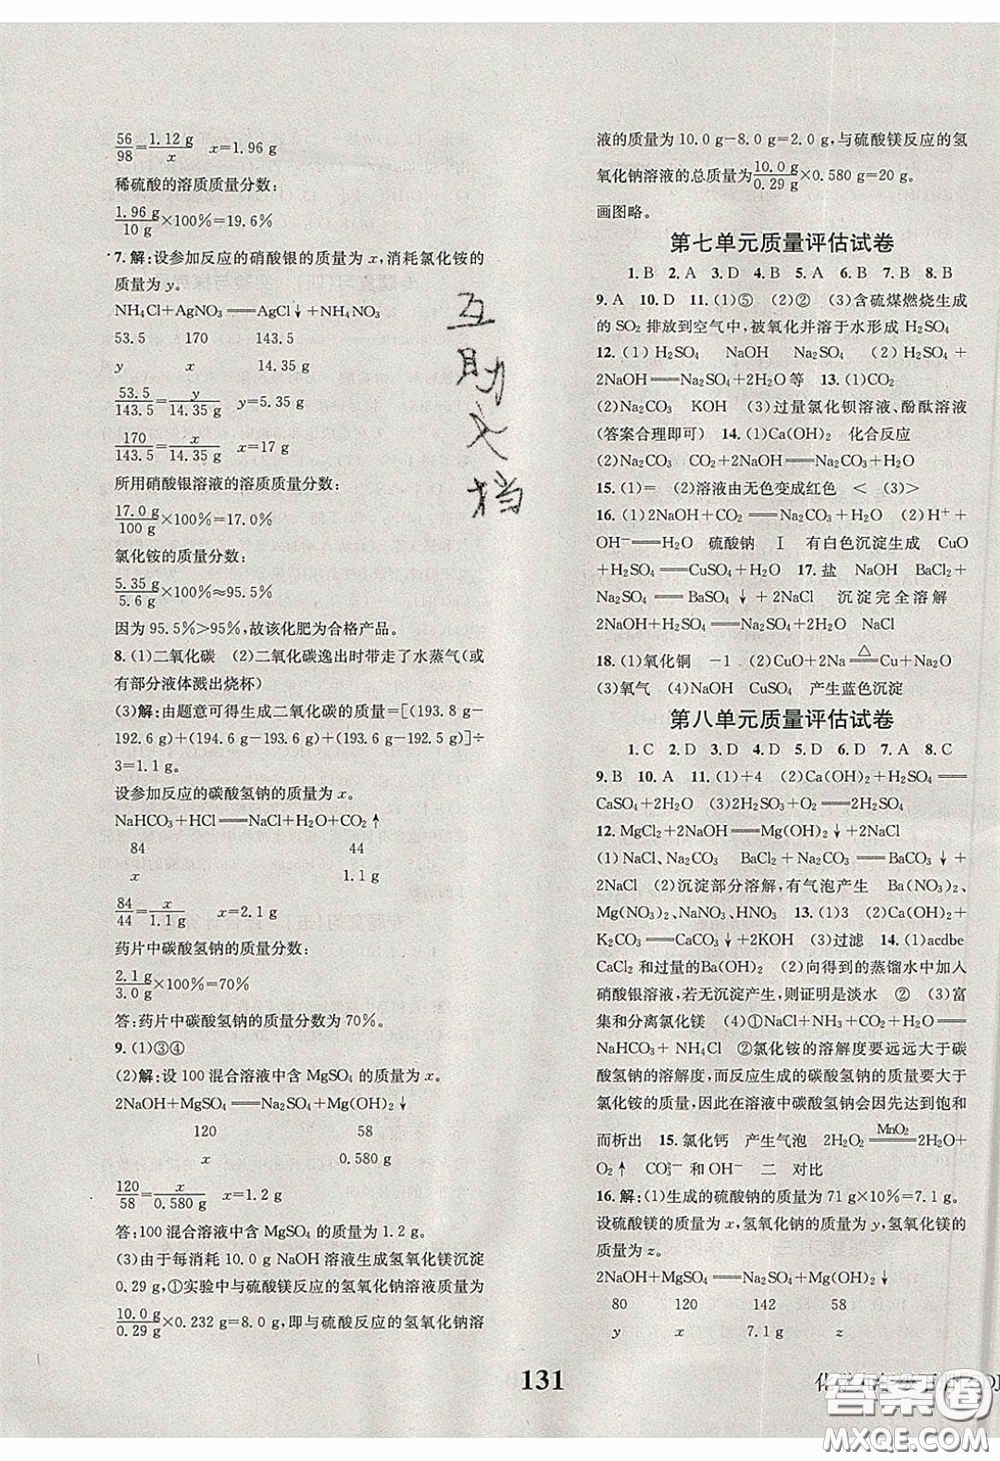 56/98=1.12 g/x　x=1.96 g
稀硫酸的溶质质量分数:
1.96 g/10 g×100%=19.6%
7.解:设参加反应的硝酸银的质量为x,消耗氯化铵的
质量为y。
NH4Cl+AgNO3══AgCl↓+NH4NO3
53.5　170　143.5
y　x　14.35 g
53.5/143.5=y/14.35 g　y=5.35 g
170/143.5=x/14.35 g　x=17 g
所用硝酸银溶液的溶质质量分数:
17.0 g/100 g×100%=17.0%
氯化铵的质量分数:
5.35 g/5.6 g×100%≈95.5%
因为95.5%>95%,故该化肥为合格产品。
8.(1)二氧化碳　(2)二氧化碳逸出时带走了水蒸气(或
有部分液体溅出烧杯)
(3)解:由题意可得生成二氧化碳的质量=[(193.8 g-
192.6 g)+(194.6 g-193.5 g)+(193.4 g-192.5 g)]÷
3=1.1 g。
设参加反应的碳酸氢钠的质量为x。
NaHCO3+HCl══NaCl+H2O+CO2↑
84　44
x　1.1 g
84/44=x/1.1 g　x=2.1 g
药片中碳酸氢钠的质量分数:
2.1 g/3.0 g×100%=70%
答:药片中碳酸氢钠的质量分数为70%。
9.(1)③④
(2)解:设100混合溶液中含MgSO4的质量为x。
2NaOH+MgSO4══Na2SO4+Mg(OH)2↓
120　58
x　0.580 g
120/58=x/0.580 g　x=1.2 g
答:100混合溶液中含MgSO4的质量为1.2 g。
(3)由于每消耗10.0 g NaOH溶液生成氢氧化镁沉淀
0.29 g,①实验中与硫酸镁反应的氢氧化钠溶液质量为
10.0 g/0.29 g×0.232 g=8.0 g,即与硫酸反应的氢氧化钠溶
互
助
文
档
液的质量为10.0 g-8.0 g=2.0 g,与硫酸镁反应的氢
氧化钠溶液的总质量为10.0 g/0.29 g×0.580 g=20 g。
画图略。
第七单元质量评估试卷
1.B　2.A　3.D　4.B　5.A　6.B　7.D　8.D
9.A　10.D　11.(1)⑤　(2)②　(3)含硫煤燃烧生成
的SO2排放到空气中,被氧化并溶于水形成H2SO4
12.(1)H2SO4　NaOH　Na2SO4　(2)H2SO4+
2NaOH══Na2SO4+2H2O等　13.(1)CO2
(2)Na2CO3　KOH　(3)过量氯化钡溶液、酚酞溶液
(答案合理即可)　14.(1)Ca(OH)2　化合反应
(2)Na2CO3　CO2+2NaOH══Na2CO3+H2O
15.(1)一　(2)溶液由无色变成红色　<　(3)>
16.(1)2NaOH+CO2══Na2CO3+H2O　(2)H+
+OH-══H2O　硫酸钠　Ⅰ　有白色沉淀生成　CuO
+H2SO4══CuSO4+H2O　17.盐　NaOH　BaCl2+
Na2SO4══BaSO4↓+2NaCl　沉淀完全溶解
2NaOH+H2SO4══Na2SO4+2H2O　NaCl
18.(1)氧化铜　-1　(2)CuO+2Na══△Cu+Na2O
(3)氧气　(4)NaOH　CuSO4　产生蓝色沉淀
第八单元质量评估试卷
1.C　2.D　3.D　4.D　5.D　6.D　7.A　8.C
9.B　10.A　11.(1)+4　(2)Ca(OH)2+H2SO4══
CaSO4+2H2O　(3)2Na2SO3+O2══2Na2SO4
12.MgCl2+2NaOH══Mg(OH)2↓+2NaCl
(1)NaCl、Na2CO3　BaCl2+Na2CO3══BaCO3↓+
2NaCl　(2)沉淀部分溶解,有气泡产生　Ba(NO3)2、
Mg(NO3)2、NaNO3、HNO3　13.(1)2　(2)Ca(OH)2+
K2CO3══CaCO3↓+2KOH　(3)过滤　14.(1)acdbe
CaCl2和过量的Ba(OH)2　(2)向得到的蒸馏水中加入
硝酸银溶液,若无沉淀产生,则证明是淡水　②　(3)富
集和分离氯化镁　(4)①NaCl+NH3+CO2+H2O══
NaHCO3↓+NH4Cl　②氯化铵的溶解度要远远大于碳
酸氢钠的溶解度,而反应生成的碳酸氢钠的质量小于
氯化铵的质量,因此在溶液中碳酸氢钠会因先达到饱和
而析出　15.氯化钙　产生气泡　2H2O2══MnO2 2H2O+
O2↑　CO3²-和OH-　二　对比
16.解:(1)生成的硫酸钠的质量为71 g×10%=7.1 g。
设硫酸镁的质量为x,氢氧化钠的质量为y,氢氧化镁的
质量为z。
2NaOH+MgSO4══Na2SO4+Mg(OH)2↓
80　120　142　58
y　x　7.1 g　z
131
答案圈
MXQE.COM